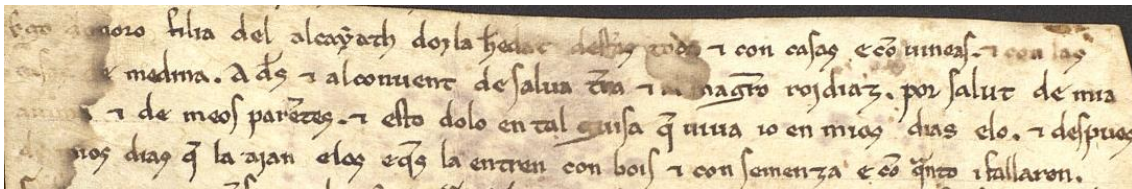 Ego domoro filia del alcayath dorla h̃edat con casas e cõ uineas. ⁊ con las
casas de medina. A dẽs ⁊ al conuent de salua tr̃ra ⁊ magr̃o roidiaz. por salut de mia
anima ⁊ de meos parẽtes. ⁊ esto dolo en tal guisa q̃ uiua io en mios dias elo. ⁊ despues
de mios dias q̃ la aian elos e q̃s la entren con bois ⁊ con semenza e cõ quãto i fallaren.